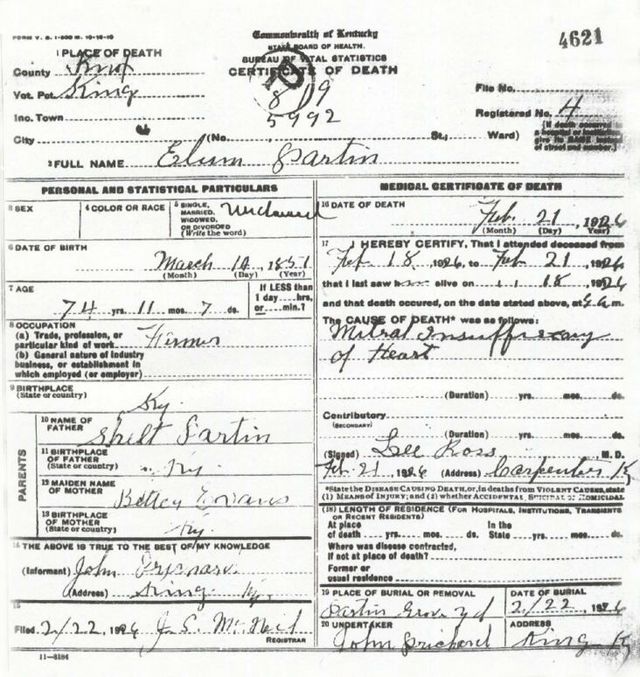 FORM V. S. 1-500 M. 10-15-19
Commonwealth of Kentucky
STATE BOARD OF HEALTH.
BUREAU OF VITAL STATISTICS
CERTIFICATE OF DEATH
4621
1 PLACE OF DEATH
County Knox
Vot. Pct. King
Inc. Town
City (No. St., Ward)
8 19
5992
File No.
Registered No. 4
(If death occurred
a hospital or institution
give its NAME instead
of street and number.)
2 FULL NAME Elum Partin
PERSONAL AND STATISTICAL PARTICULARS
3 SEX
4 COLOR OR RACE
5 SINGLE,
MARRIED,
WIDOWED,
OR DIVORCED
(Write the word)
6 DATE OF BIRTH
March 14, 1851
(Month) (Day) (Year)
7 AGE
74 yrs. 11 mos. 7 ds.
If LESS than
1 day....hrs,
or....min.?
8 OCCUPATION
(a) Trade, profession, or
particular kind of work Farmer
(b) General nature of industry
business, or establishment in
which employed (or employer)
9 BIRTHPLACE
(State or country) Ky.
PARENTS
10 NAME OF
FATHER Shelt Partin
11 BIRTHPLACE
OF FATHER
(State or country) Ky.
12 MAIDEN NAME
OF MOTHER Betsey Evans
13 BIRTHPLACE
OF MOTHER
(State or country) Ky.
14 THE ABOVE IS TRUE TO THE BEST OF MY KNOWLEDGE
(Informant) John
(Address) King Ky.
15
Filed 2/22, 1926 J. S. McNeil
REGISTRAR
11-3184
MEDICAL CERTIFICATE OF DEATH
16 DATE OF DEATH
Feb. 21, 1926
(Month) (Day) (Year)
17 I HEREBY CERTIFY, That I attended deceased from
Feb 18, 1926, to Feb 21, 1926,
that I last saw alive on 18, 1926,
and that death occurred, on the date stated above, at m.
The CAUSE OF DEATH* was as follows:
Mitral Insufficiency
of Heart
(Duration) yrs. mos. ds.
Contributory
(SECONDARY)
(Duration) yrs. mos. ds.
(Signed) Lee Ross M. D.
Feb. 21, 1926 (Address) Carpenter, K
*State the DISEASE CAUSING DEATH, or, in deaths from VIOLENT CAUSES, state
(1) MEANS OF INJURY; and (2) whether ACCIDENTAL, SUICIDAL or HOMICIDAL
(18) LENGTH OF RESIDENCE (FOR HOSPITALS, INSTITUTIONS, TRANSIENTS
OR RECENT RESIDENTS)
At place
of death yrs. mos. ds.
In the
State yrs. mos. ds.
Where was disease contracted,
if not at place of death?
Former or
usual residence
19 PLACE OF BURIAL OR REMOVAL
Partin Grove yd
DATE OF BURIAL
2/22 1926
20 UNDERTAKER
John Prichard
ADDRESS
King K